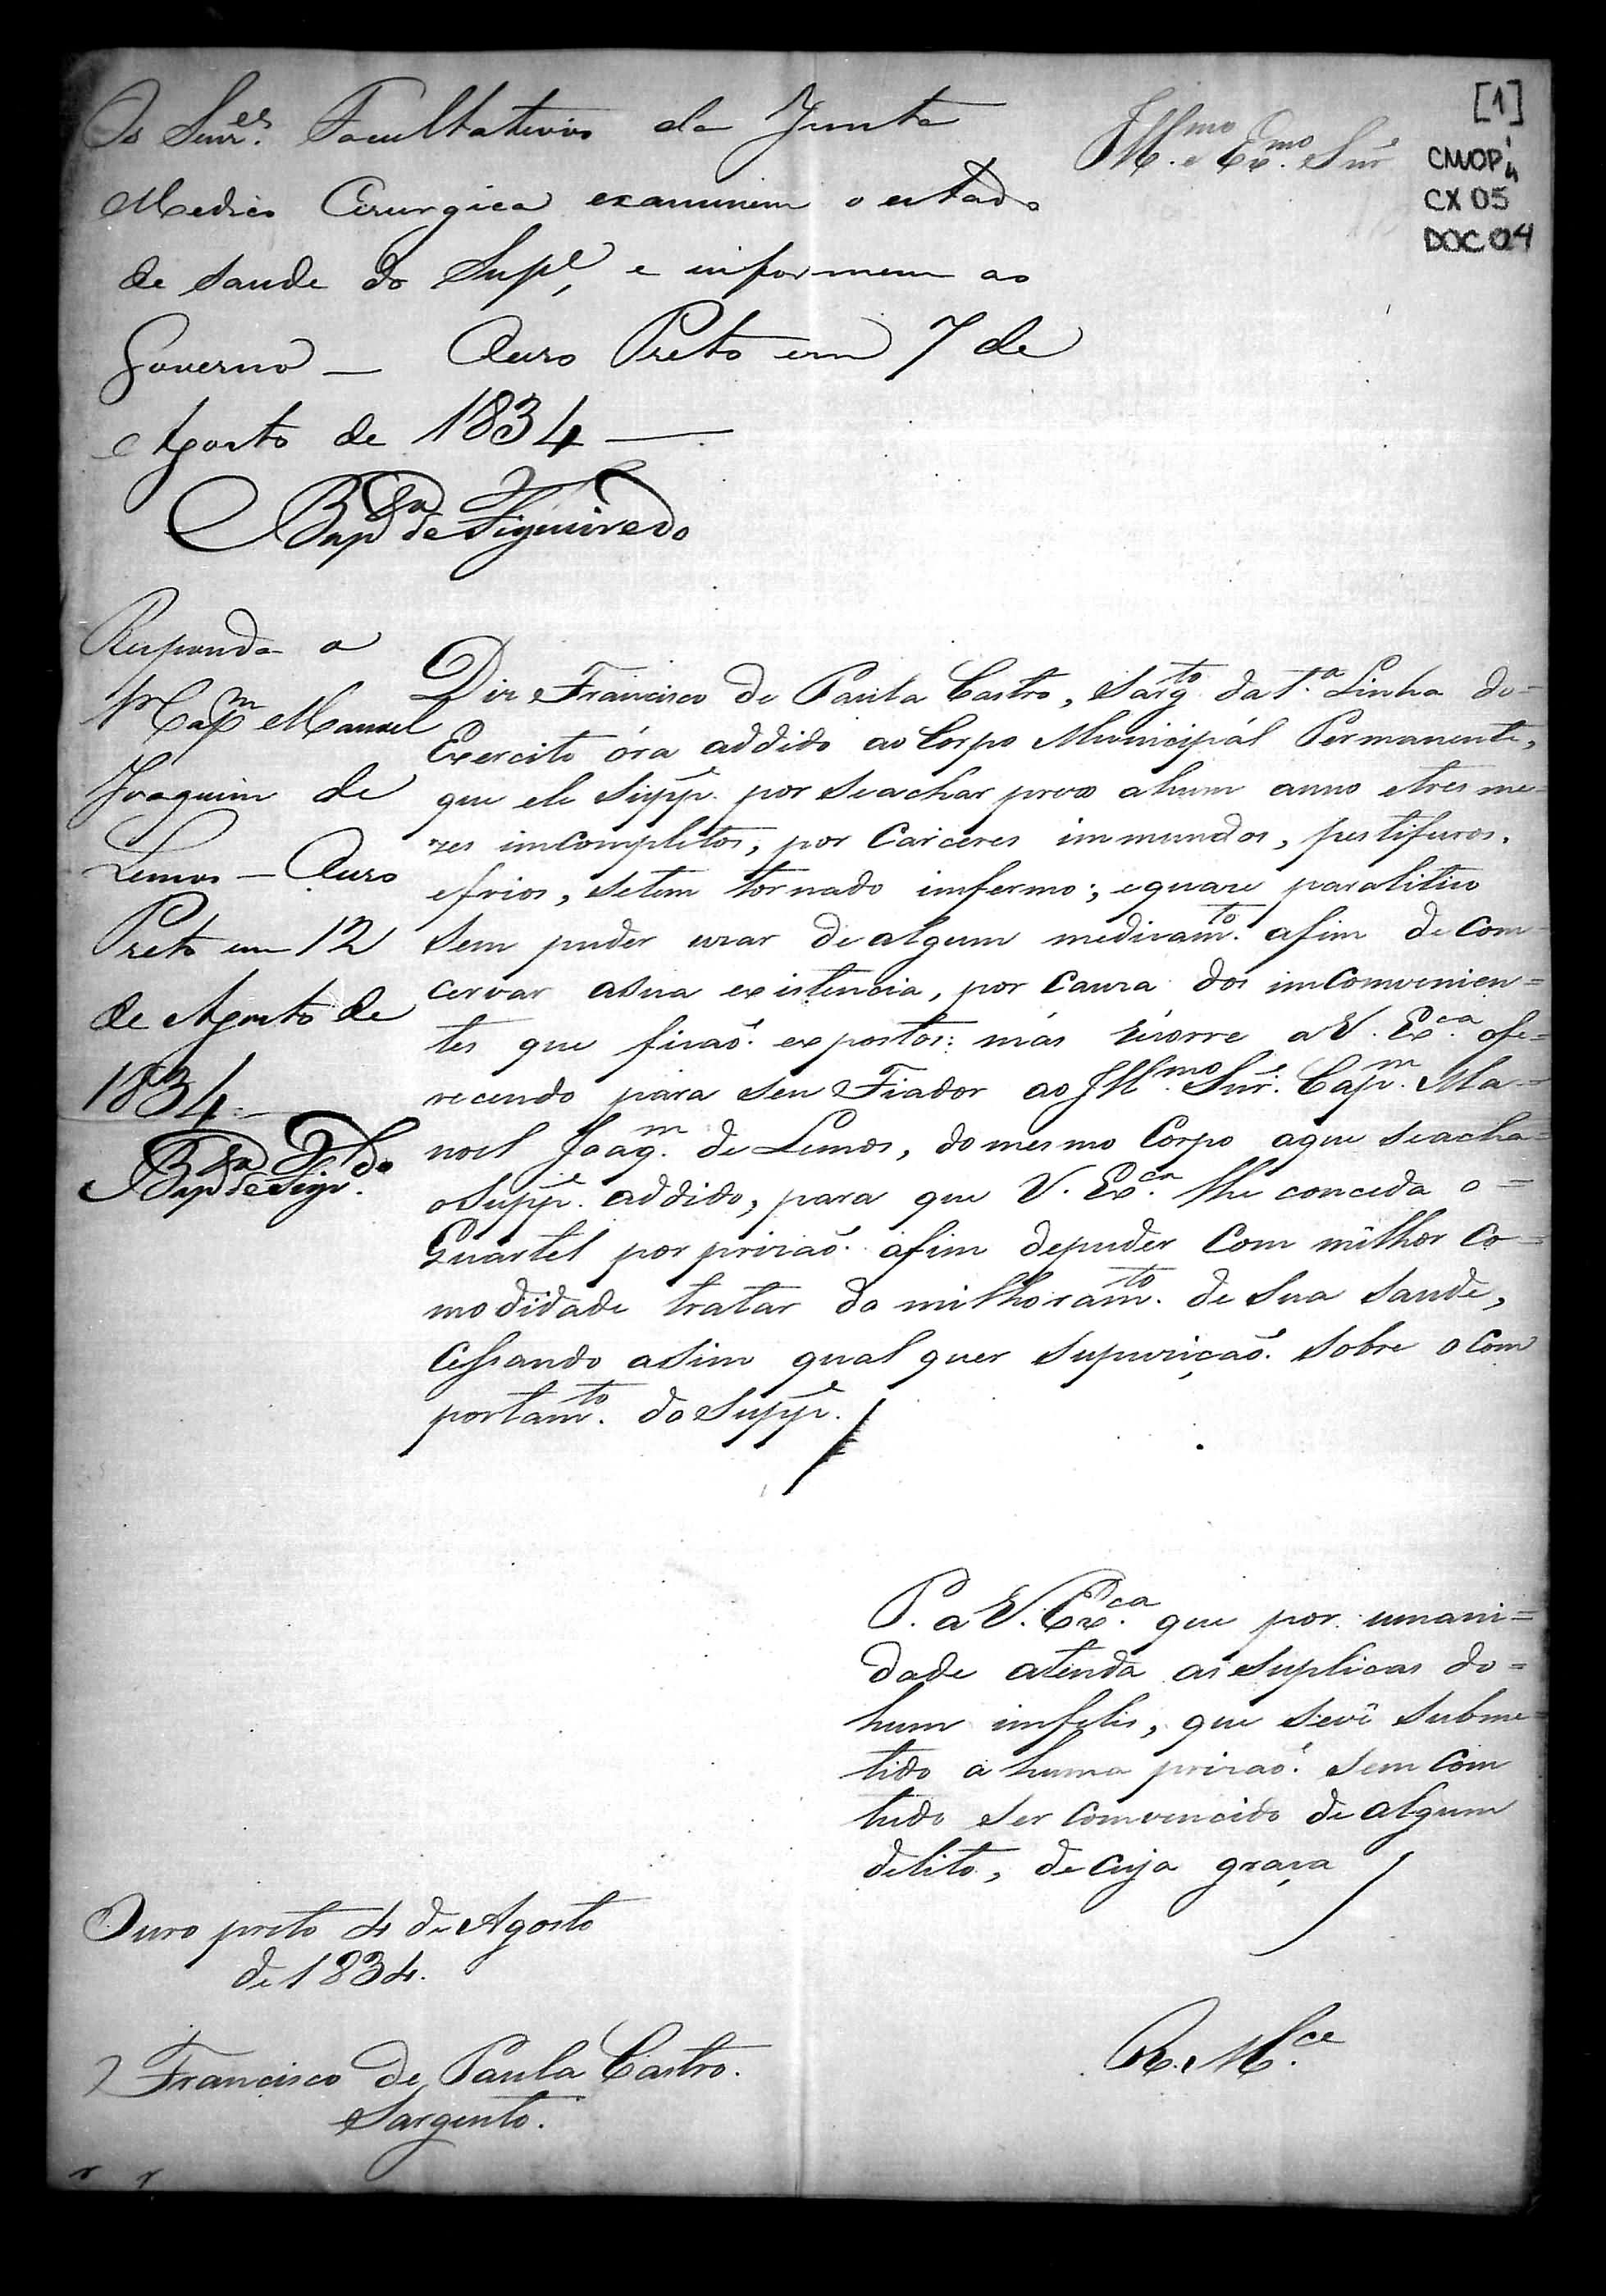 [1]
CMOP
CX 05
DOC 04
Os Snr.es Facultativos da Junta
Medico Cirurgica examinem o estado
de saude do Sup.e, e informem ao
Governo — Ouro Preto em 7 de
Agosto de 1834 —
Bap.ta de Figueiredo
Ill.mo e Ex.mo Snr
Responda o
Cap.m Manoel
Joaquim de
Lemos — Ouro
Preto em 12
de Agosto de
1834 —
Bap.ta de Figr.do
Diz Francisco de Paula Castro, Sarg.to da 1.a Linha do=
Exercito óra addido ao Corpo Municipál Permanente,
que ele Supp.e por seachar prezo ahum anno etres me=
zes imcompletos, por Carceres immundos, pestiferos,
efrios, setem tornado imfermo; equaze paralitico
sem puder uzar de algum medicam.to afim de Com=
cervar asua existencia, por Cauza dos imConvenien=
tes que ficaõ expostos: más recorre a V. Ex.ca ofe=
recendo para seu Fiador ao Ill.mo Snr. Cap.m Ma=
noel Joaq.m de Lemos, do mesmo Corpo aque seacha=
o Supp.e addido, para que V. Ex.ca lhe conceda o=
Quartel por prizaõ. afim depuder Com milhor Co=
modidade tratar do milhoram.to de Sua Saude,
Cessando asim qual quer supuziçaõ. sobre o Com
portam.to do Supp.e
P. a V. Ex.ca que por umani=
dade atenda as Suplicas do=
hum imfelis, que sevê Subme=
tido a huma prizaõ. Sem Com
tudo ser Comvencido de algum
delito, de Cuja graça
Ouro preto 4 de Agosto
de 1834.
R. M.ce
Francisco de Paula Castro.
Sargento.